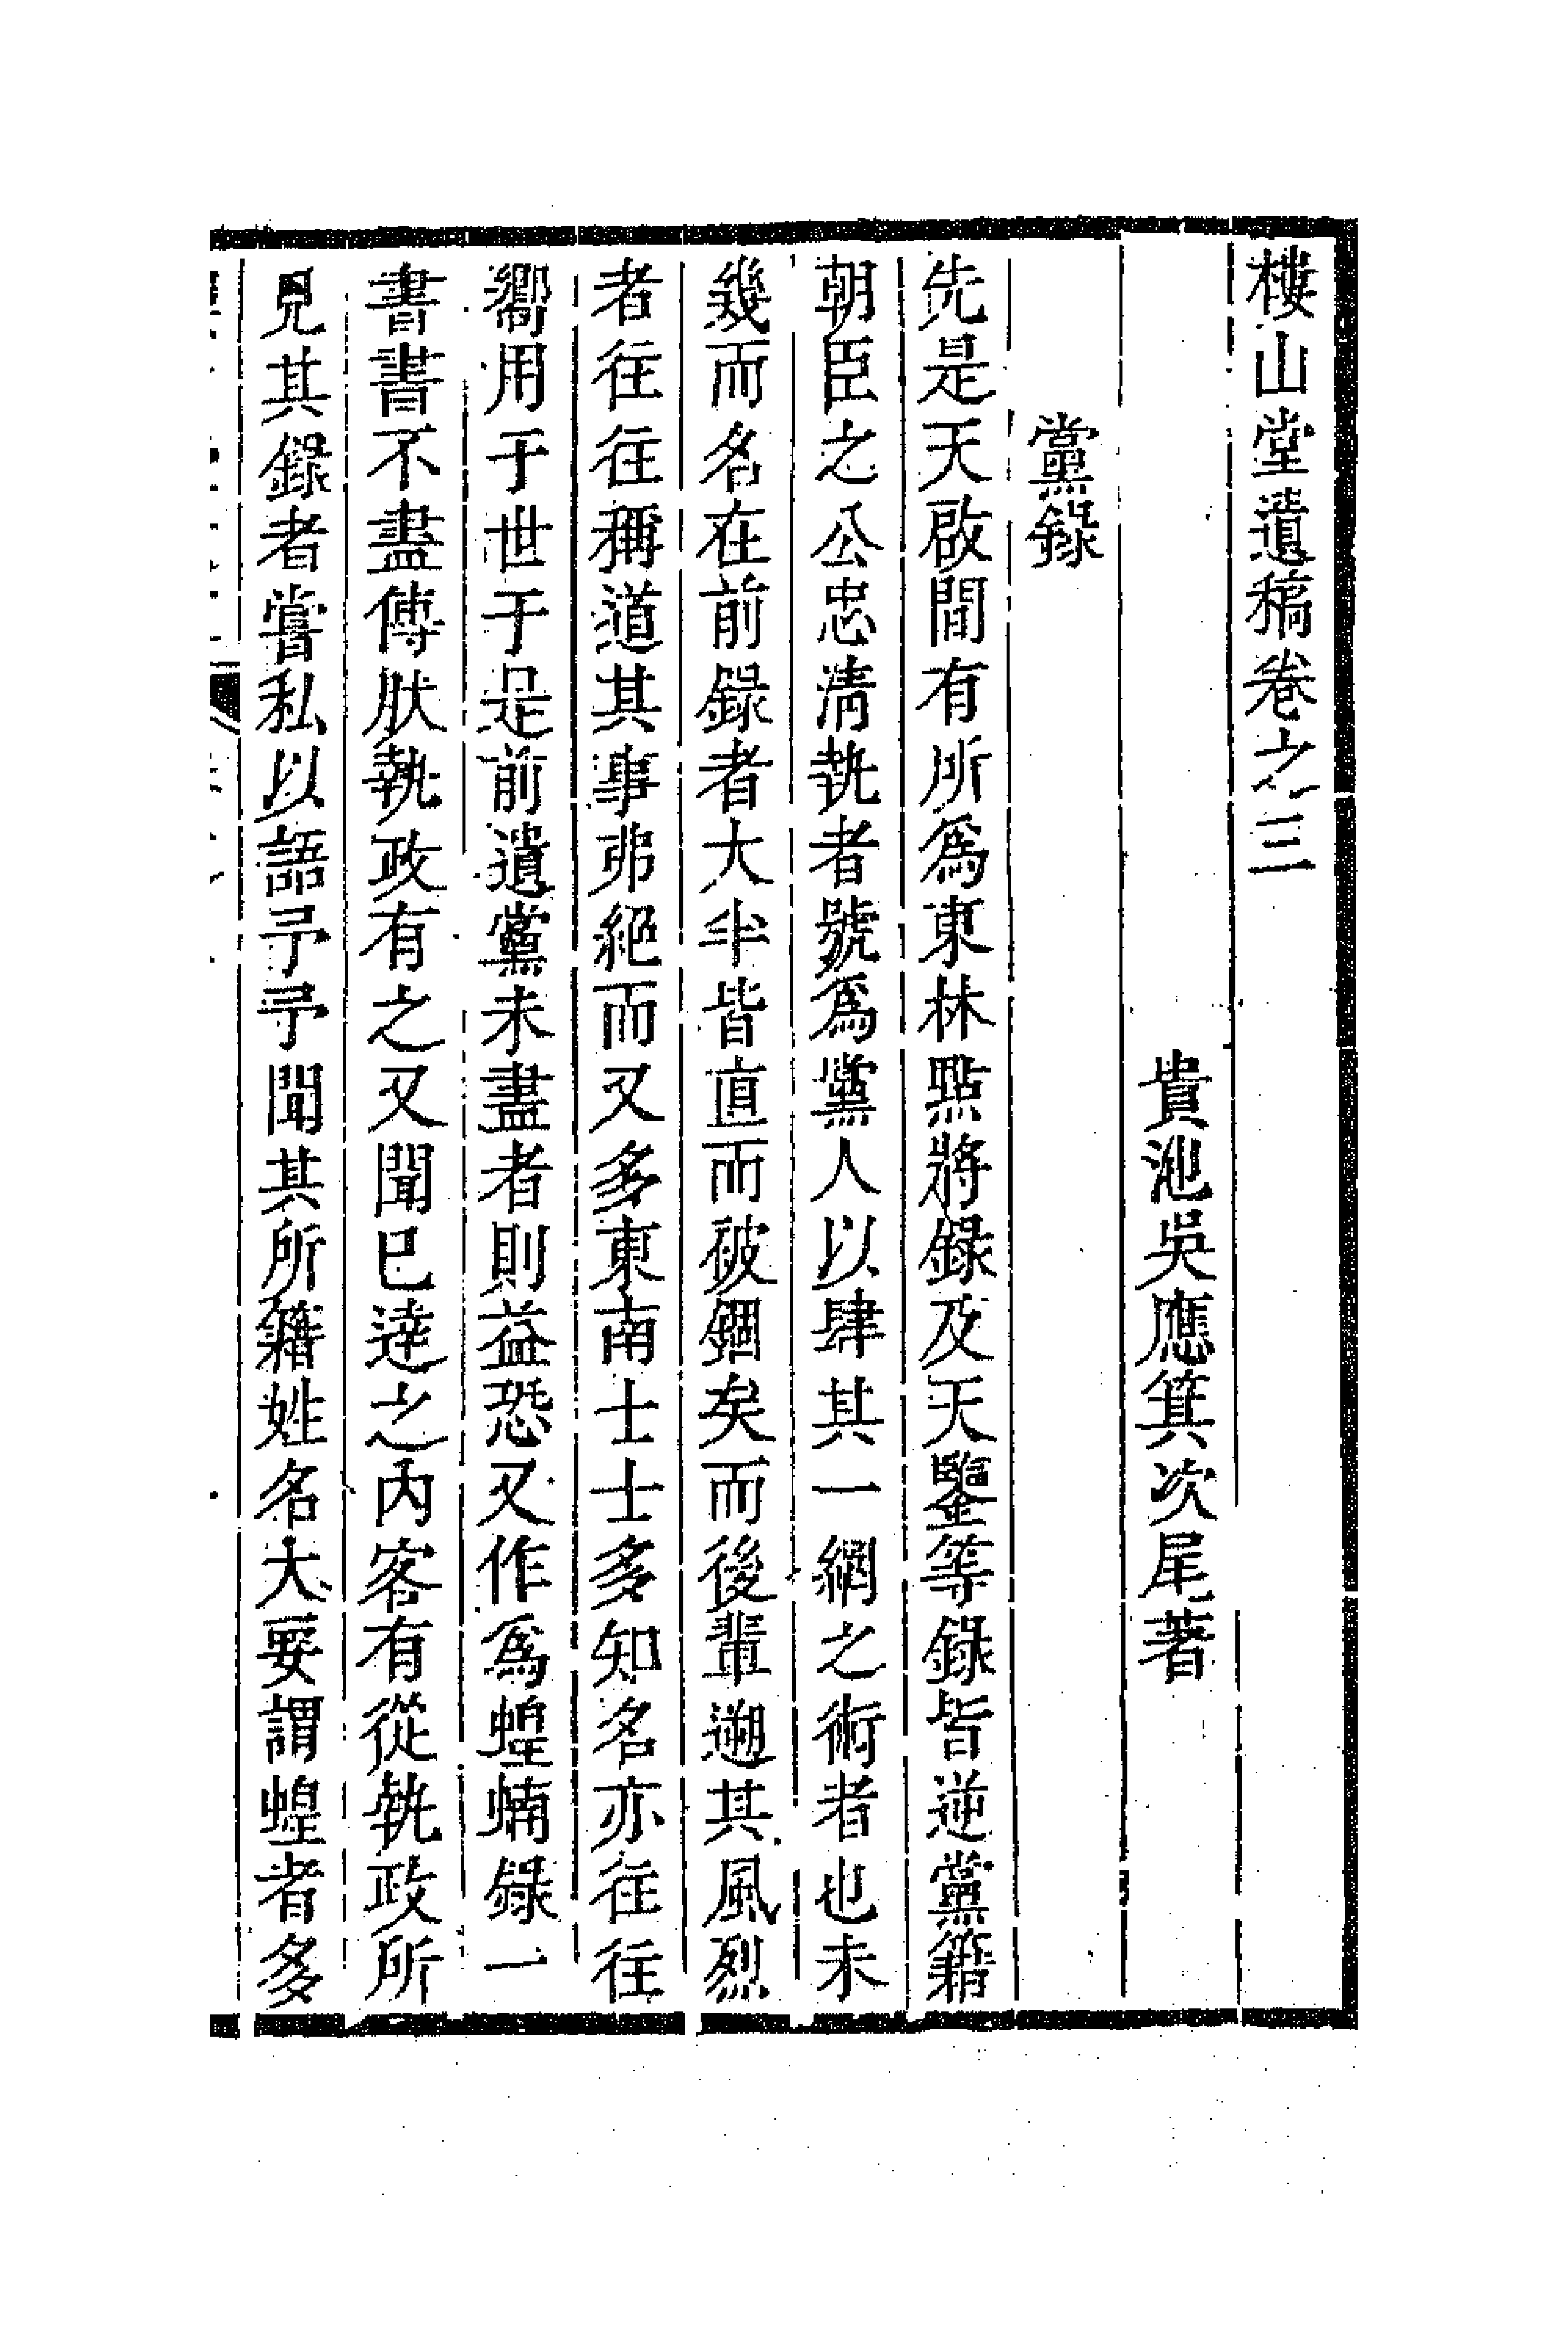 樓山堂遺稿卷之三
貴池吳應箕次尾著
黨錄
先是天啟間有所為東林點將錄及天鑒等錄皆逆黨籍
朝臣之公忠淸執者號為黨人以肆其一網之術者也未
幾而名在前錄者大半皆直而被錮矣而後輩遡其風烈
者往往稱道其事弗絕而又多東南士士多知名亦往往
嚮用于世于是前遺黨未盡者則益恐又作為蝗蝻錄一
書書不盡傳肰執政有之又聞已達之內客有從執政所
見其錄者嘗私以語予予聞其所籍姓名大要謂蝗者多